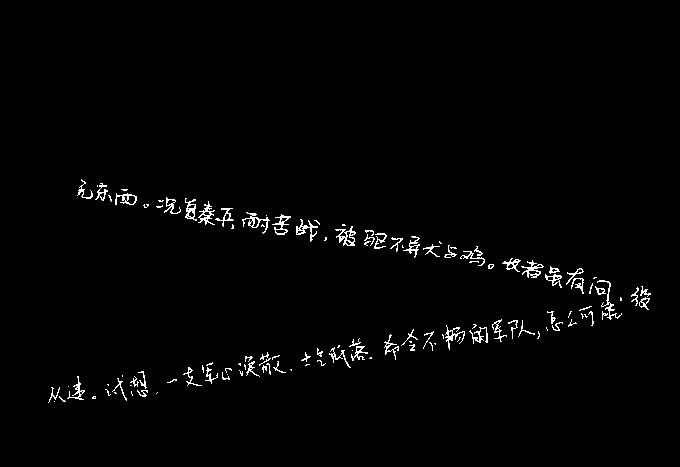 无东西。况复秦兵耐苦战，被驱不异犬与鸡。长者虽有问，役
从违。试想，一支军心涣散、士气低落、命令不畅的军队，怎么可能